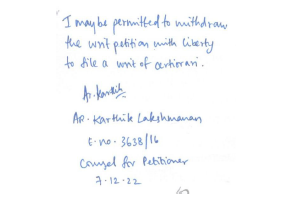 I may be permitted to withdraw
the writ petition with liberty
to file a writ of certiorari.
AR. Karthik
AR. Karthik Lakshmanan
E. no. 3638/16
Counsel for Petitioner
7.12.22